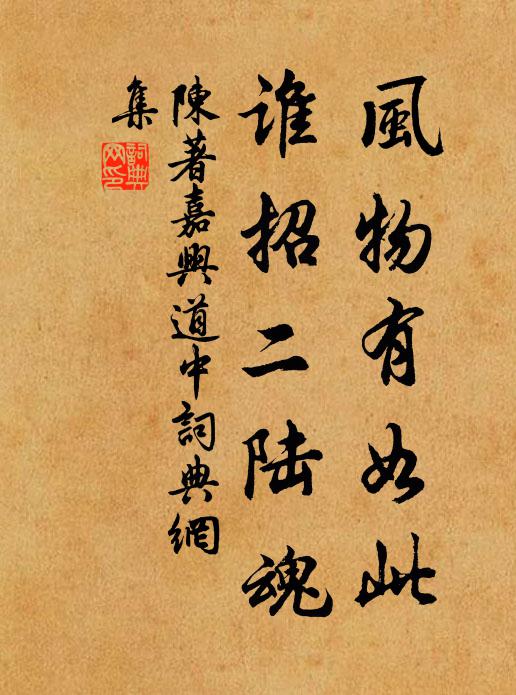 風物有如此
谁招二陆魂
陳著嘉興道中詞典網
集
詞典
网印